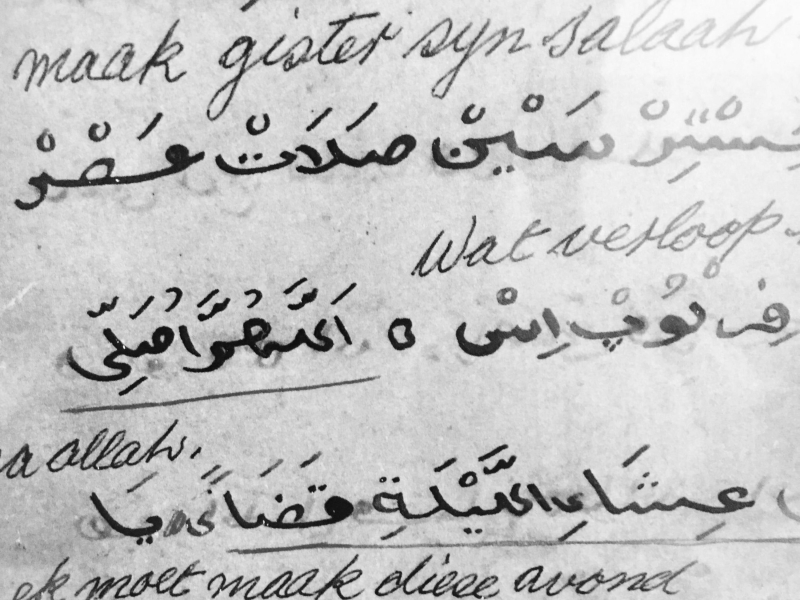 maak gister syn salaah
سَيْنْ صَلَاتْ عَصْرْ
Wat verloop
اِسْ ه اَللّٰهُمَّ اُصَلِّى
a allah,
عِشَاءِ اللَّيْلَةِ قَضَاءً يَا
ek moet maak diese avond